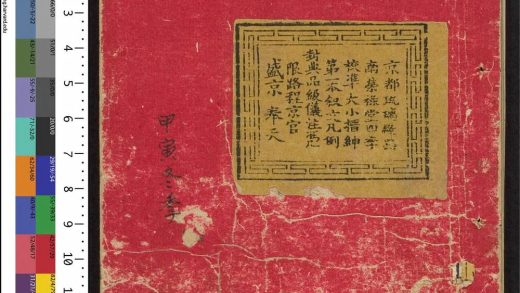 京都琉璃廠西
南榮祿堂四季
準大小搢紳
第一本叙文凡例
封典品級儀注憑
限路程京官
盛京 奉天
甲寅冬季
3
4
5
6
7
8
9
10
11